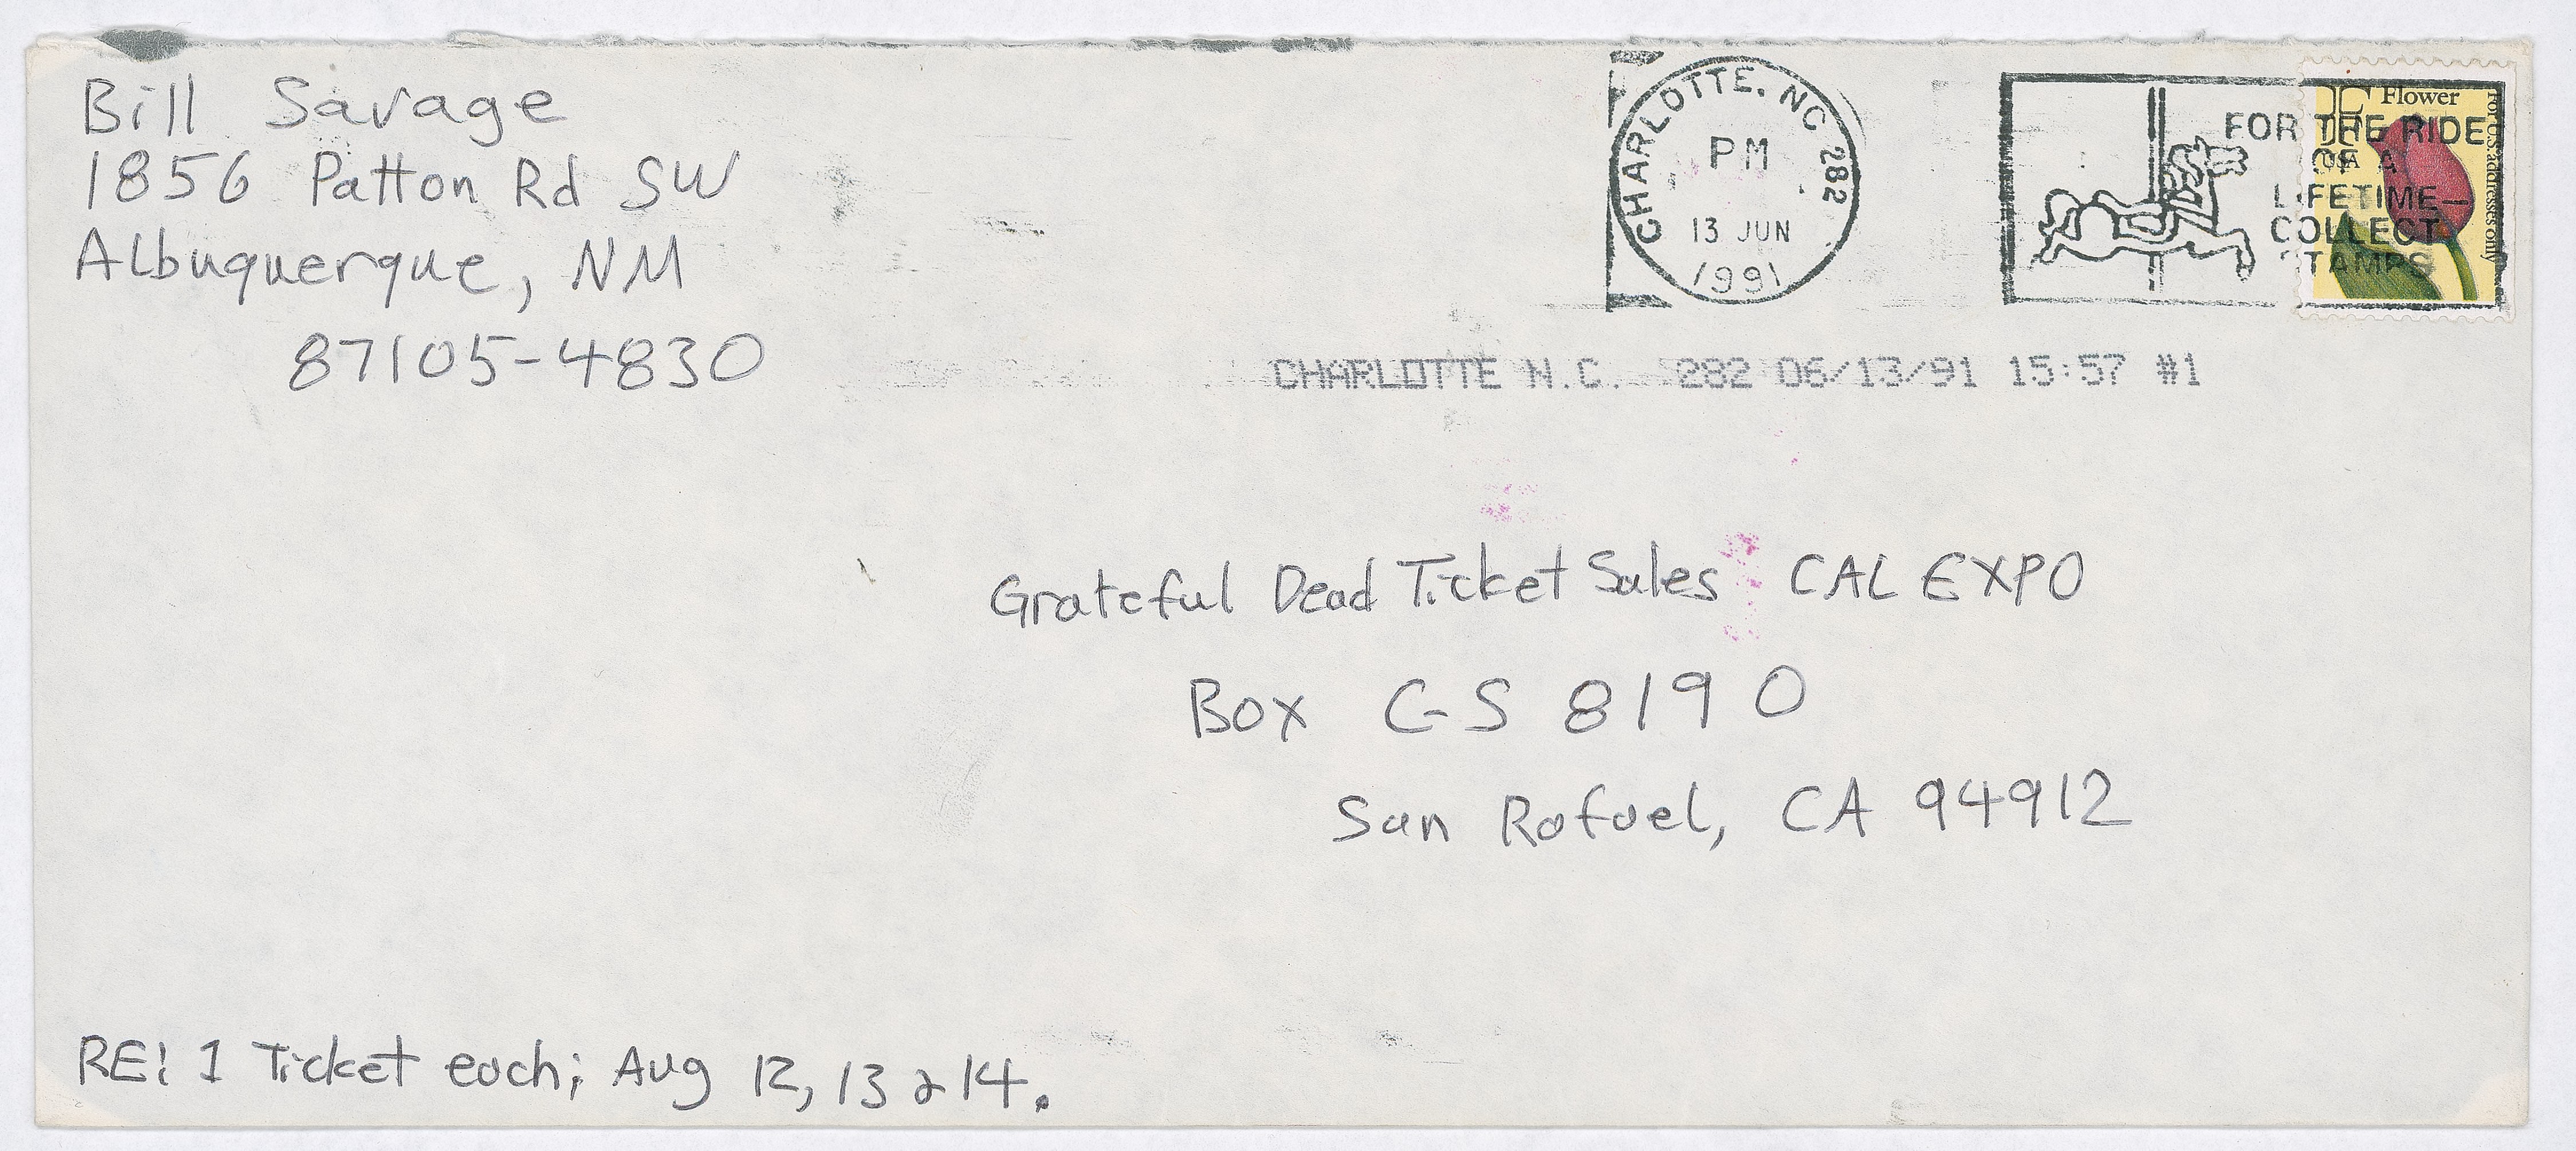 Bill Savage
1856 Patton Rd SW
Albuquerque, NM
87105-4830
CHARLOTTE, NC 282
PM
13 JUN
1991
FOR THE RIDE
OF A
LIFETIME—
COLLECT
STAMPS
F Flower
USA
For U.S. addresses only
CHARLOTTE N.C. 282 06/13/91 15:57 #1
Grateful Dead Ticket Sales CAL EXPO
Box C-S 8190
San Rafael, CA 94912
RE: 1 Ticket each; Aug 12, 13 & 14.